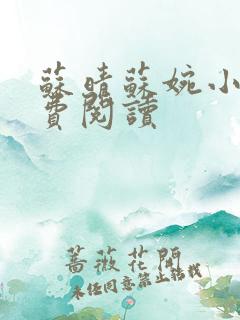 蘇晴蘇婉小
費閱讀
薔薇花開
未經同意禁止轉載